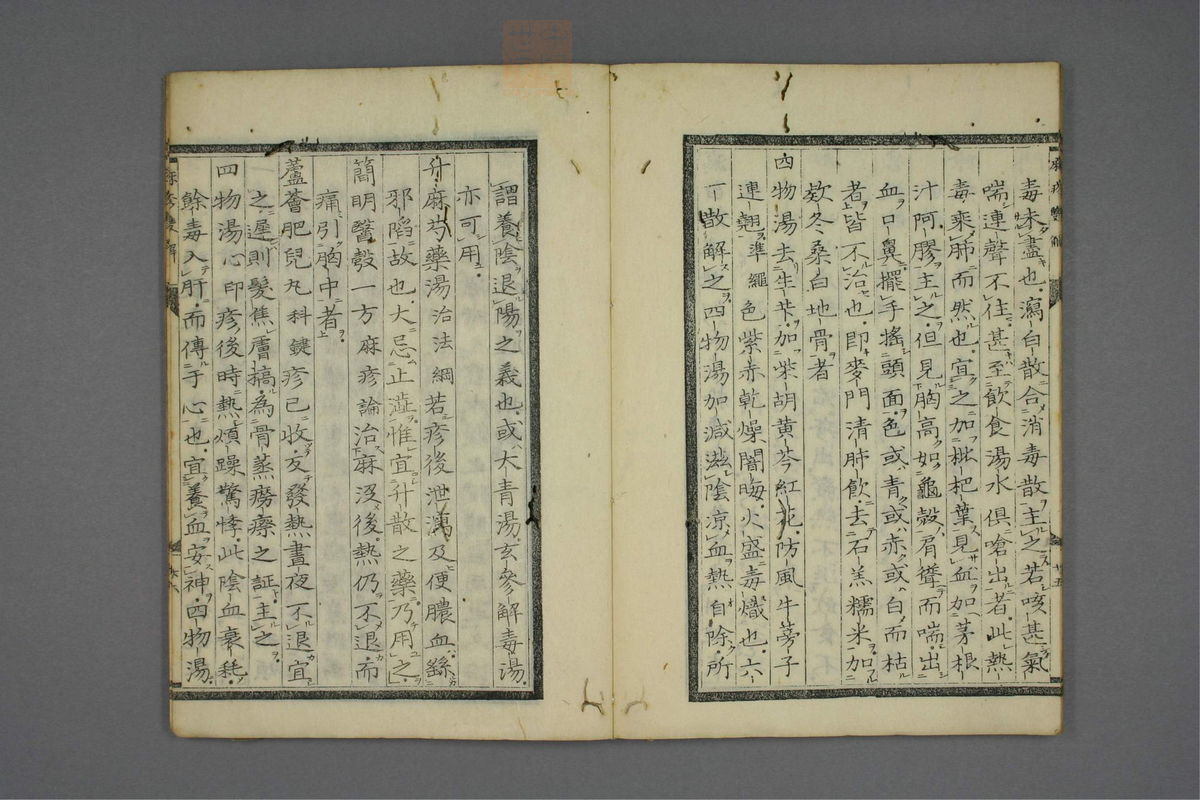 毒未盡也瀉白散合消毒散主之若咳甚氣
喘連聲不住甚至飲食湯水俱嗆出者此熱
毒乘肺而然也宜之加枇杷葉見血加茅根
汁阿膠主之但見胸高如龜殼肩聳而喘出
血口鼻擺手搖頭面色或青或赤或白而枯
者皆不治也即麥門清肺飲去石羔糯米加
欵冬桑白地骨者
四物湯去生芐加柴胡黄芩紅花防風牛蒡子
連翹準繩色紫赤乾燥闇晦火盛毒熾也六一
散解之四物湯加減滋陰凉血熱自除所
謂養陰退陽之義也或大青湯玄參解毒湯
亦可用
升麻芍藥湯治法綱若疹後泄瀉及便膿血繇
邪陷故也大忌止澁惟宜升散之藥乃用之
簡明醫彀一方麻疹論治麻沒後熱仍不退而
痛引胸中者
蘆薈肥兒丸科鍵疹已收友發熱晝夜不退宜
之遲則髮焦膚槁為骨蒸癆瘵之証主之
四物湯心印疹後時熱煩躁驚悸此陰血衰耗
餘毒入肝而傳于心也宜養血安神四物湯